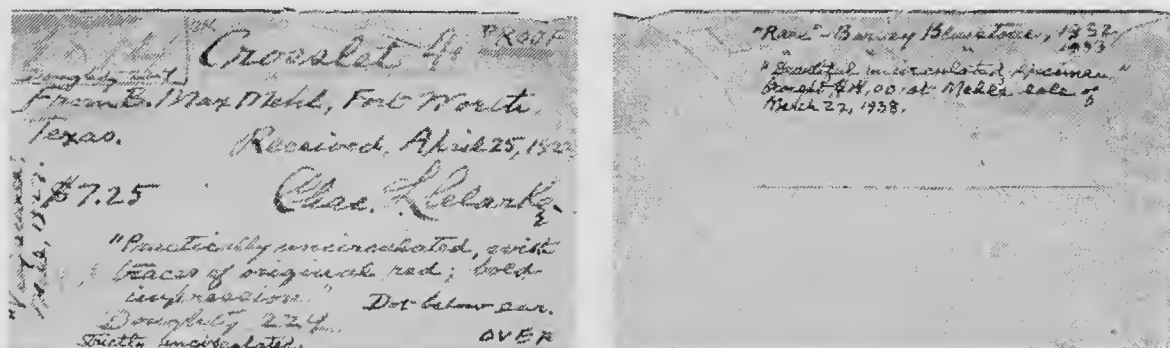 Crosslet 4 PROOF
Doughty 224
From B. Max Mehl, Fort Worth,
Texas. Received, April 25, 1922
$7.25 Chas. Clark
"Practically uncirculated, with
traces of original red; bold
impression." Dot below ear.
Doughty 224.
Strictly uncirculated. OVER
"Rare" - Barney Bluestone, 1932
1933
"Beautiful uncirculated specimen,"
brought $14.00 at Mehl's sale of
March 22, 1938.